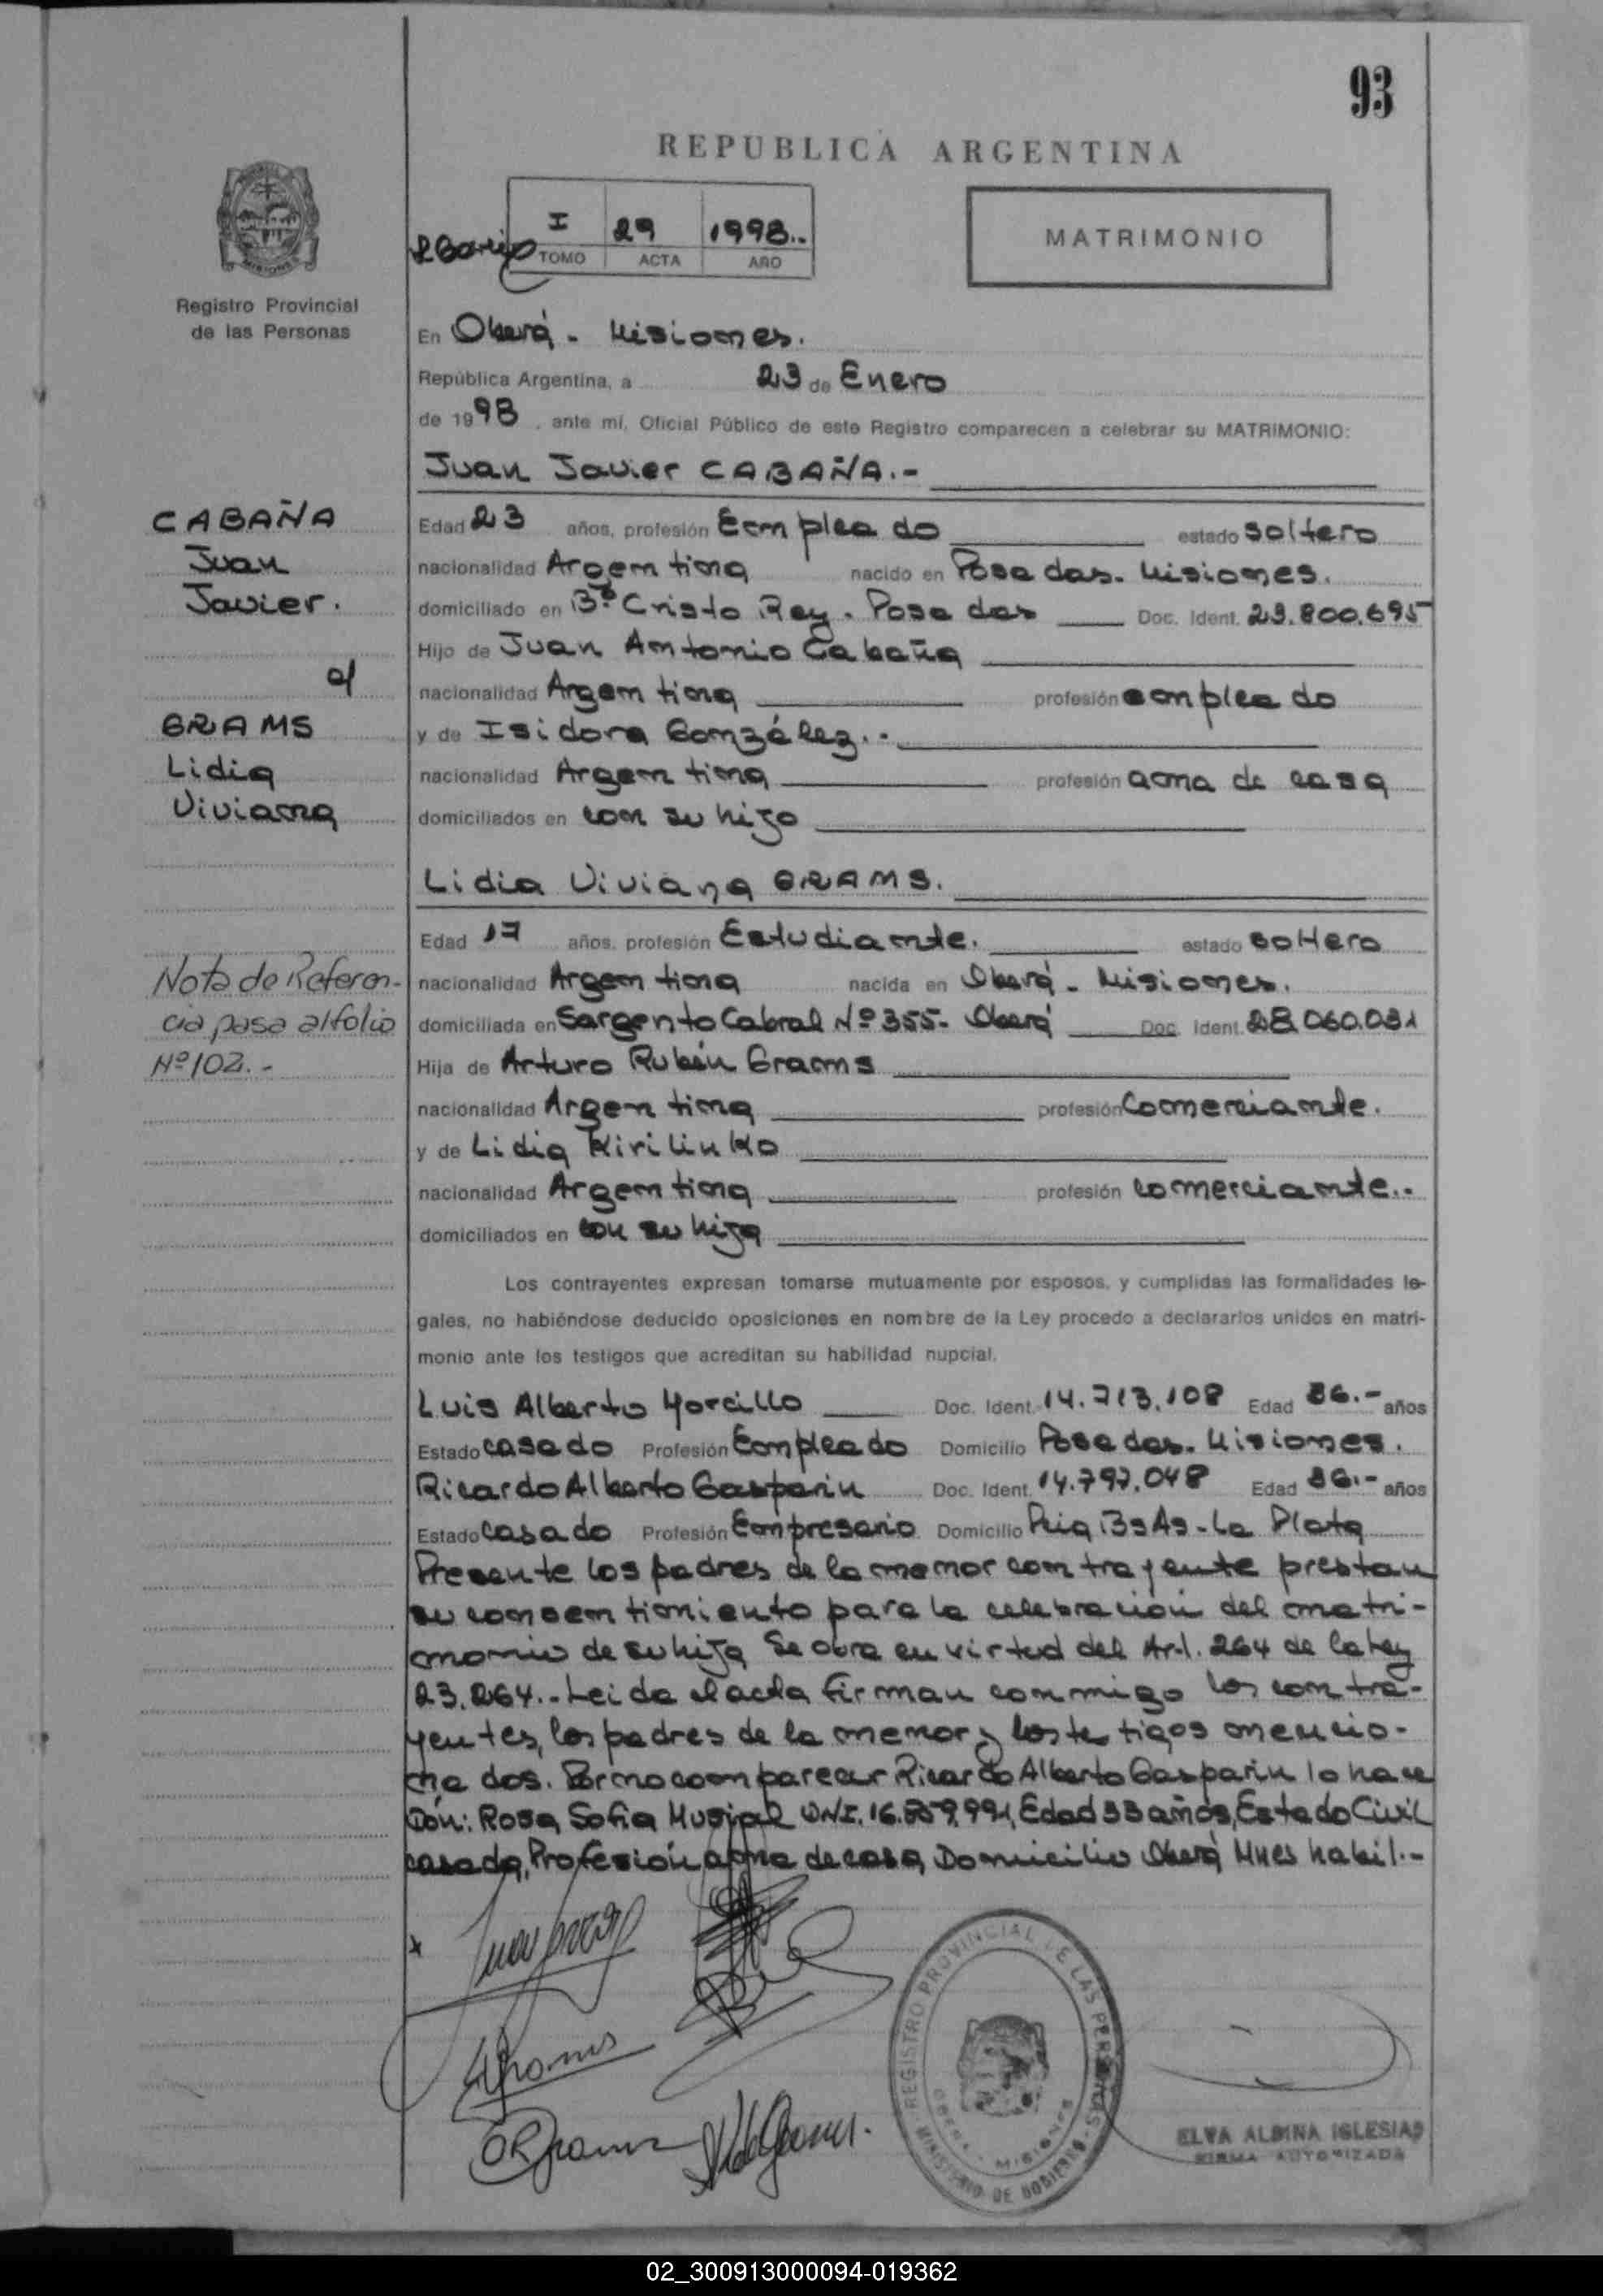 93
REPUBLICA ARGENTINA
I 29 1998..
TOMO ACTA AÑO
MATRIMONIO
MISIONES
Registro Provincial
de las Personas
En Oberá - Misiones.
República Argentina, a 23 de Enero
de 1998, ante mí, Oficial Público de este Registro comparecen a celebrar su MATRIMONIO:
Juan Javier CABAÑA.-
CABAÑA
Juan
Javier.
c/
GRAMS
Lidia
Viviana
Edad 23 años, profesión Empleado estado soltero
nacionalidad Argentina nacido en Posadas. Misiones.
domiciliado en Bº Cristo Rey. Posadas Doc. Ident. 23.800.695
Hijo de Juan Antonio Cabaña
nacionalidad Argentina profesión empleado
y de Isidora González..-
nacionalidad Argentina profesión ama de casa
domiciliados en con su hijo
Lidia Viviana GRAMS.
Edad 17 años, profesión Estudiante. estado soltera
nacionalidad Argentina nacida en Oberá - Misiones.
domiciliada en Sargento Cabral Nº 355- Oberá Doc. Ident. 28.060.031
Hija de Arturo Rubén Grams
nacionalidad Argentina profesión Comerciante.
y de Lidia Kirilinko
nacionalidad Argentina profesión comerciante..
domiciliados en con su hija
Nota de Referen-
cia pasa al folio
Nº 102.-
Los contrayentes expresan tomarse mutuamente por esposos, y cumplidas las formalidades le-
gales, no habiéndose deducido oposiciones en nombre de la Ley procedo a declararlos unidos en matri-
monio ante los testigos que acreditan su habilidad nupcial.
Luis Alberto Morcillo Doc. Ident. 14.713.108 Edad 36.- años
Estado casado Profesión Empleado Domicilio Posadas. Misiones.
Ricardo Alberto Gasparin Doc. Ident. 14.797.048 Edad 36.- años
Estado casado Profesión Empresario Domicilio Pcia Bs As - La Plata
Presente los padres de la menor contrayente prestan
su consentimiento para la celebración del matri-
monio de su hija Se obra en virtud del Art. 264 de la Ley
23.264..- Leida el acta firman conmigo los contra-
yentes, los padres de la menor y los testigos mencio-
nados. Por no comparecer Ricardo Alberto Gasparin lo hace
Doñ: Rosa Sofia Musial DNI. 16.859.991, Edad 33 años, Estado Civil
casada, Profesión ama de casa, Domicilio Oberá Mnes habil.-
REGISTRO PROVINCIAL DE LAS PERSONAS
OBERA - MISIONES
MINISTERIO DE GOBIERNO
ELVA ALBINA IGLESIAS
FIRMA AUTORIZADA
02_300913000094-019362